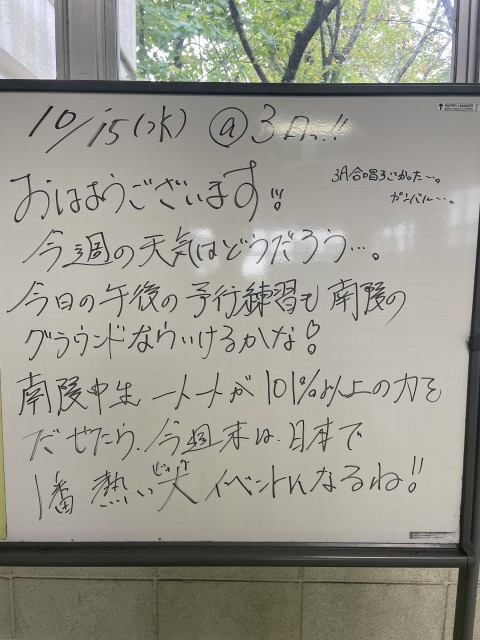 10/15(水) @3日!!
おはようございます!!
3A合唱すごかった〜。
ガンバル〜。
今週の天気はどうだろう…。
今日の午後の予行練習も南陵の
グラウンドならいけるかな!
南陵中生 一人一人が101%以上の力を
だせたら、今週末は、日本で
1番熱い犬イベントになるね!!